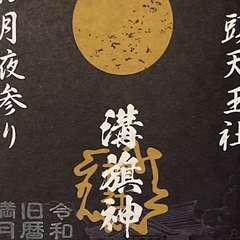 頭天王社
溝旗神
月夜参り
令和
旧暦
満月